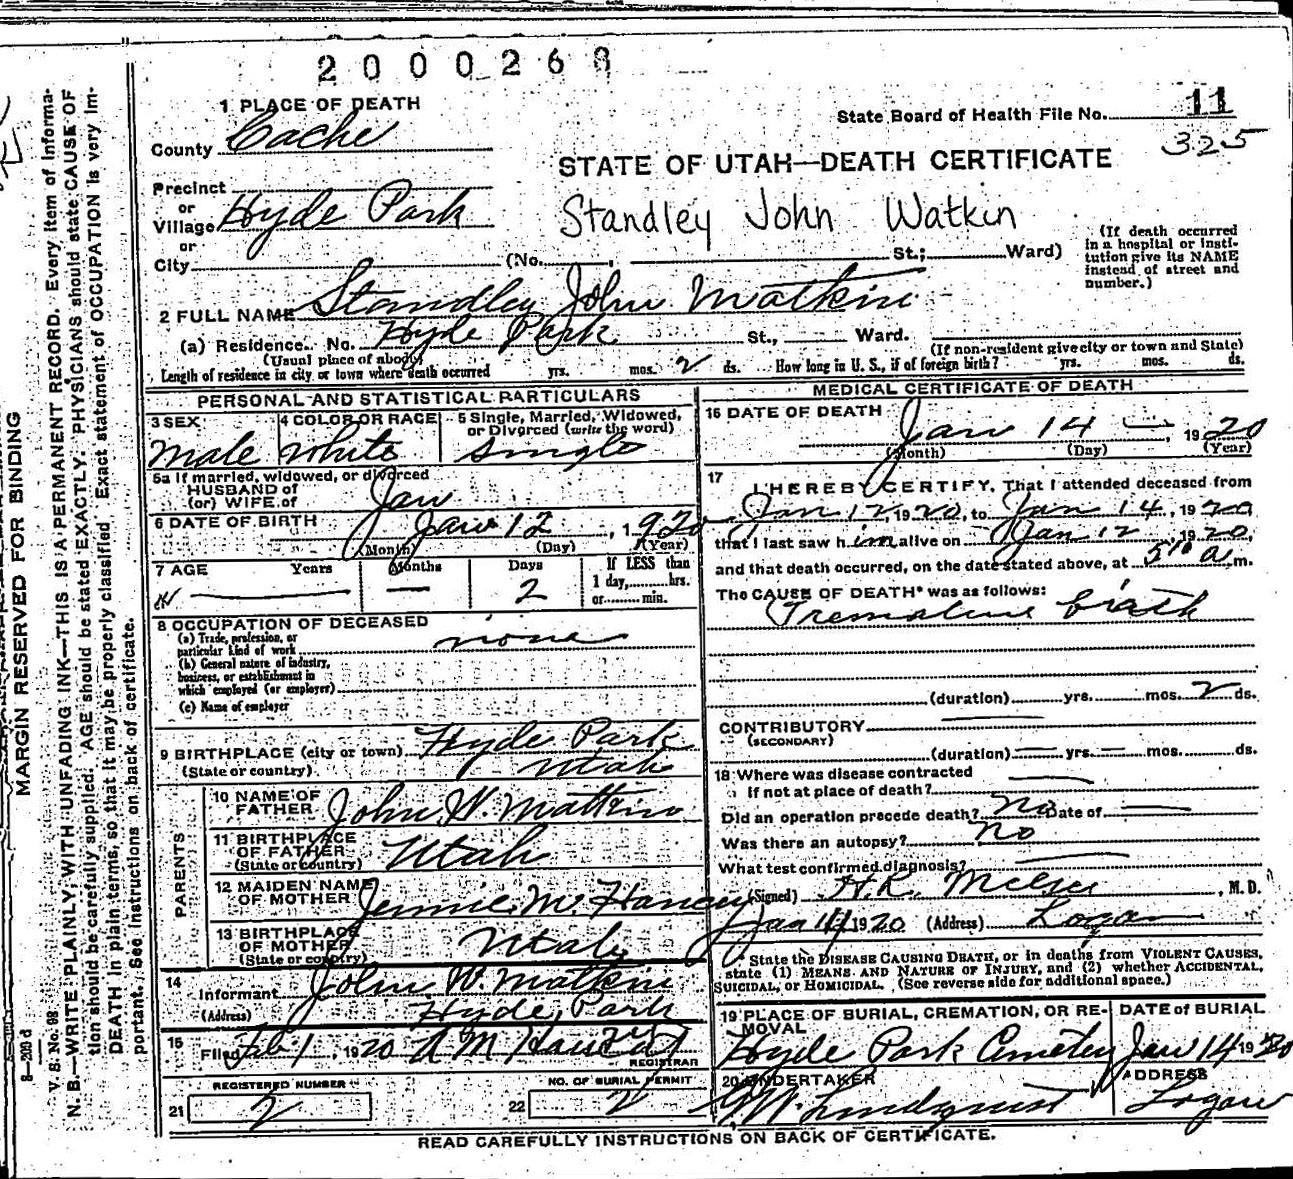 2 0 0 0 2 6 8
1 PLACE OF DEATH
State Board of Health File No. 11
325
County Cache
STATE OF UTAH—DEATH CERTIFICATE
Precinct
or
Village Hyde Park
or
City
Standley John Watkin
(No. , St.; Ward)
(If death occurred
in a hospital or insti-
tution give its NAME
instead of street and
number.)
2 FULL NAME Standley John Watkin
(a) Residence. No. Hyde Park St., Ward.
(Usual place of abode)
(If non-resident give city or town and State)
Length of residence in city or town where death occurred yrs. mos. 2 ds. How long in U. S., if of foreign birth? yrs. mos. ds.
PERSONAL AND STATISTICAL PARTICULARS
3 SEX
male
4 COLOR OR RACE
white
5 Single, Married, Widowed,
or Divorced (write the word)
single
5a If married, widowed, or divorced
HUSBAND of
(or) WIFE of
Jan
6 DATE OF BIRTH Jan 12, 1920
(Month) (Day) (Year)
7 AGE Years Months Days
— — 2
If LESS than
1 day, hrs.
or min.
8 OCCUPATION OF DECEASED
(a) Trade, profession, or
particular kind of work none
(b) General nature of industry,
business, or establishment in
which employed (or employer)
(c) Name of employer
9 BIRTHPLACE (city or town) Hyde Park
(State or country) Utah
PARENTS
10 NAME OF
FATHER John W. Watkins
11 BIRTHPLACE
OF FATHER
(State or country) Utah
12 MAIDEN NAME
OF MOTHER Jennie M. Hancey
13 BIRTHPLACE
OF MOTHER
(State or country) Utah
14
Informant John W. Watkin
(Address) Hyde Park
15
Filed Feb 1, 1920
REGISTRAR
REGISTERED NUMBER
21 2
NO. OF BURIAL PERMIT
22 2
MEDICAL CERTIFICATE OF DEATH
16 DATE OF DEATH
Jan 14 —, 1920
(Month) (Day) (Year)
17
I HEREBY CERTIFY, That I attended deceased from
Jan 12, 1920, to Jan 14, 1920
that I last saw him alive on Jan 12, 1920,
and that death occurred, on the date stated above, at 5 a m.
The CAUSE OF DEATH* was as follows:
Premature birth
(duration) yrs. mos. 2 ds.
CONTRIBUTORY
(SECONDARY)
(duration) — yrs. — mos. ds.
18 Where was disease contracted
if not at place of death? —
Did an operation precede death? no Date of —
Was there an autopsy? no
What test confirmed diagnosis? —
(Signed) , M. D.
Jan 14 1920 (Address) Logan
State the DISEASE CAUSING DEATH, or in deaths from VIOLENT CAUSES,
state (1) MEANS AND NATURE OF INJURY, and (2) whether ACCIDENTAL,
SUICIDAL, or HOMICIDAL. (See reverse side for additional space.)
19 PLACE OF BURIAL, CREMATION, OR RE-
MOVAL
Hyde Park Cemetery
DATE of BURIAL
Jan 14 1920
20 UNDERTAKER
Lindquist
ADDRESS
Logan
READ CAREFULLY INSTRUCTIONS ON BACK OF CERTIFICATE.
MARGIN RESERVED FOR BINDING
V. S. No. 98
N. B.—WRITE PLAINLY, WITH UNFADING INK—THIS IS A PERMANENT RECORD. Every item of Informa-
tion should be carefully supplied. AGE should be stated EXACTLY. PHYSICIANS should state CAUSE OF
DEATH in plain terms, so that it may be properly classified. Exact statement of OCCUPATION is very im-
portant. See instructions on back of certificate.